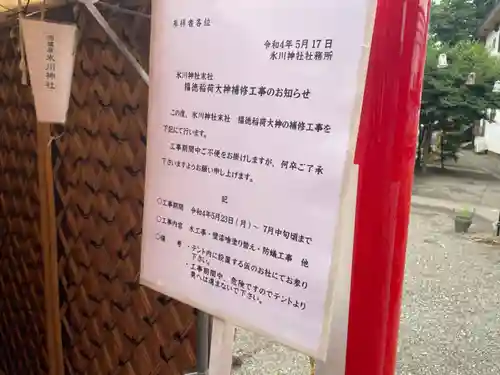 来拝者各位
令和4年5月17日
氷川神社社務所
氷川神社末社
福徳稲荷大神補修工事のお知らせ
この度、氷川神社末社 福徳稲荷大神の補修工事を
下記にて行います。
工事期間中ご不便をお掛けしますが、何卒ご了承
下さいますようお願い申し上げます。
記
〇工事期間 令和4年5月23日(月)~ 7月中旬頃まで
〇工事内容 木工事・壁漆喰塗り替え・防蟻工事 他
〇備 考 ・テント内に設置する仮のお社にてお参り
下さい。
・工事期間中、危険ですのでテントより
奥へは進まないで下さい。
氷川神社